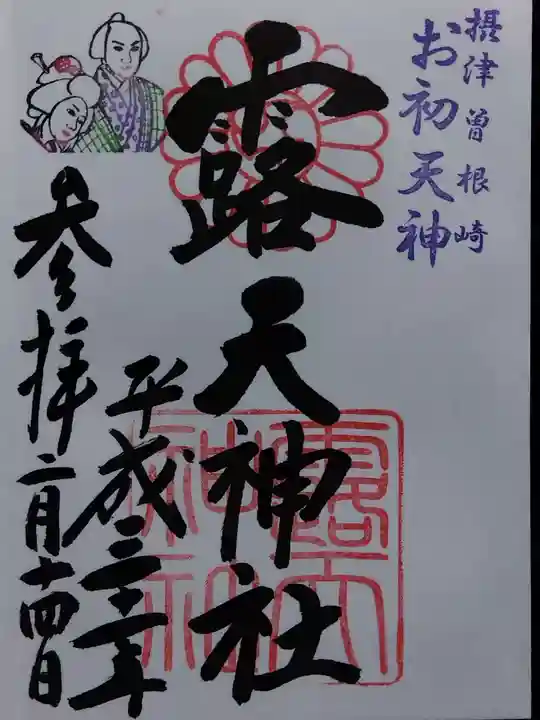 摂津曽根崎
お初天神
露天神社
平成三十一年
参拝二月十四日